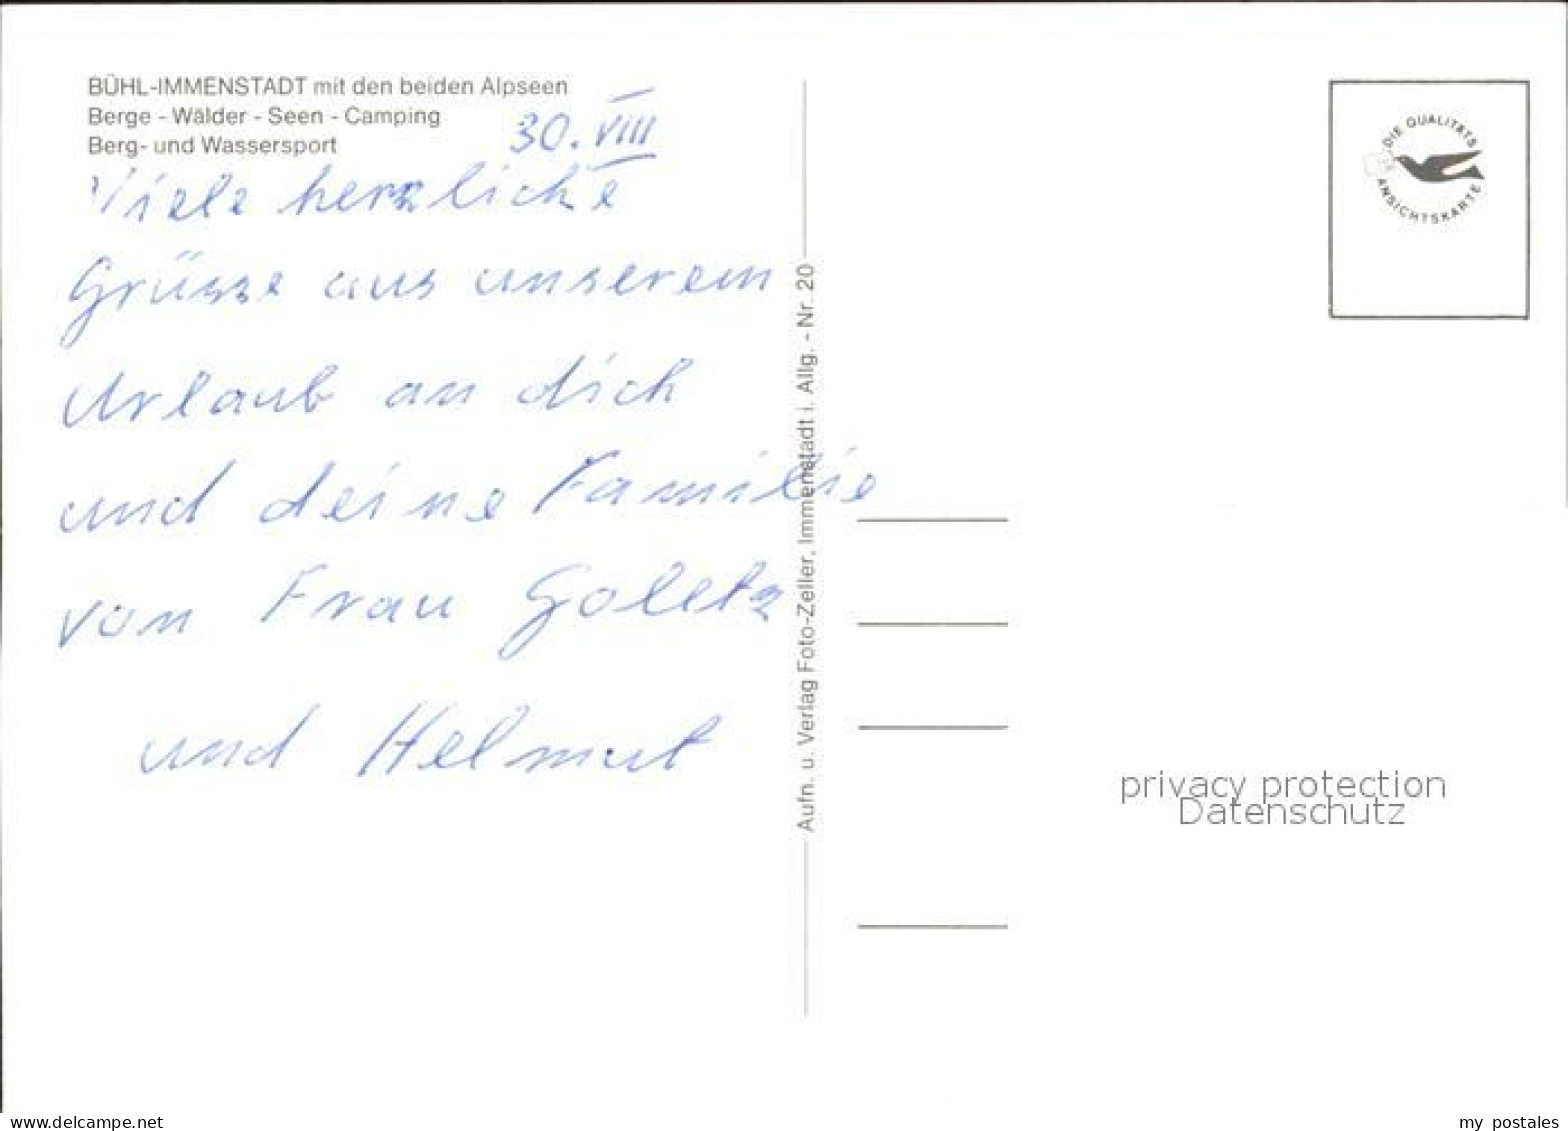 BÜHL-IMMENSTADT mit den beiden Alpseen
Berge - Wälder - Seen - Camping
Berg- und Wassersport
30. VIII
Viele herzliche
Grüsse aus unserem
Urlaub an dich
und deine Familie
von Frau Goletz
und Helmut
Aufn. u. Verlag Foto-Zeller, Immenstadt i. Allg. - Nr. 20
DIE QUALITÄTS
ANSICHTSKARTE
privacy protection
Datenschutz
www.delcampe.net
my_postales